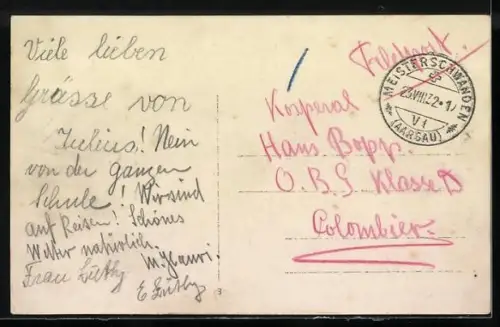 Viele lieben
Grüsse von
Julius! Nein
von der ganzen
Schule! Wir sind
auf Reisen! Schönes
Wetter natürlich.
Frau Lüthy
E Lüthy
Feldpost.
MEISTERSCHWANDEN
23.VIII.22-1
VI
(AARGAU)
Korporal
Hans Bopp.
O.B.S Klasse D
Colombier.
3